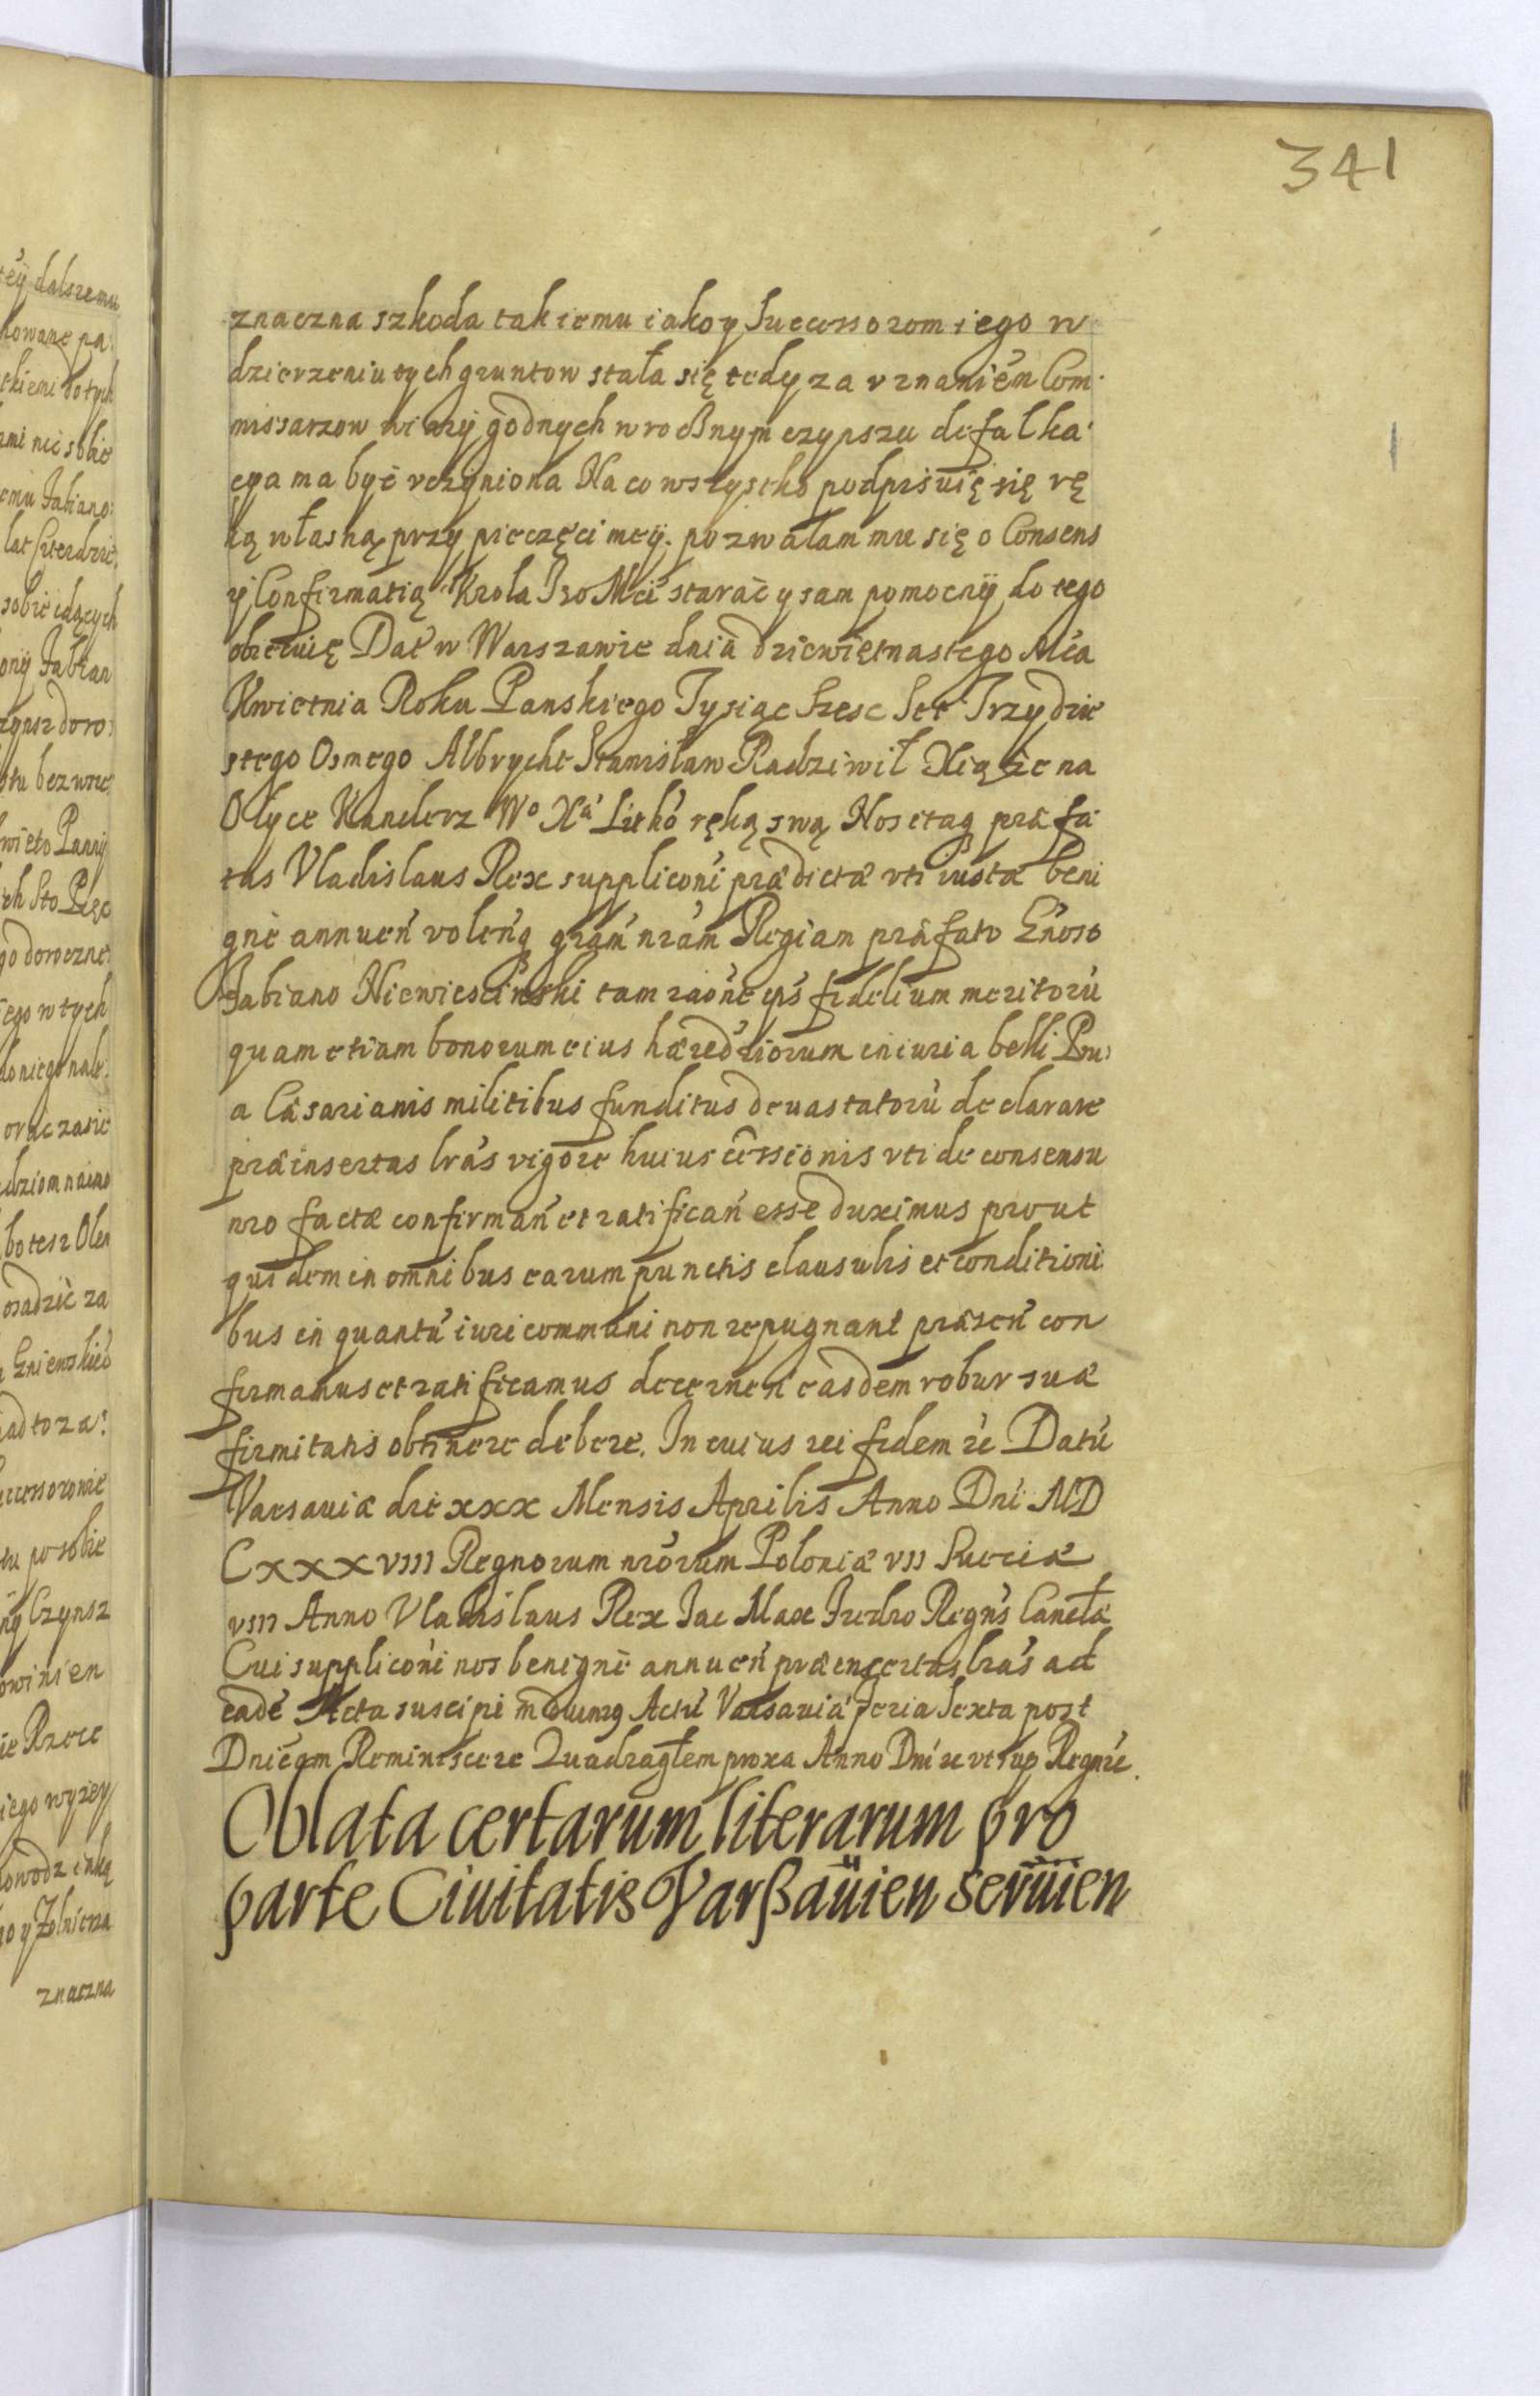 341
znaczna szkoda tak iemu iako y Successorom iego w
dzierzeniu tych gruntow stała się tedy za vznanien Com
missarzow wiary godnych w rocznym czynszu defalka
cya ma być vczyniona Na co wszystko podpisuię się rę
ką własną przy pieczęci meij. pozwalam mu się o Consens
ij Confirmatią Krola Jego Mci starać y sam pomocnij do tego
obiecuię Dat w Warszawie dnia dziewiętnastego Mca
Kwietnia Roku Panskiego Tysiąc Szesc Set Trzydzie
stego Osmego Albrycht Stanisław Radziwił Xiąże na
Ołyce Kanclerz Wo Xa Litho ręką swą Nos itaq præfa
tus Vladislaus Rex supplicõni prædictæ vti iustæ beni
gnè annueń voleńq grãm nrãm Regiam præfato Gnoso
Fabiano Niewiescinski tam raõne eps fidelium meritorũ
quam etiam bonorum eius hæreditariorum iniuria belli Pru
a Cæsarianis militibus funditus deuastatorũ declarare
præinsertas lrãs vigore huius cessionis vti de consensu
nro factæ confirmań et ratificań esse duximus prout
quidem in omnibus earum punctis clausulis et conditioni
bus in quantũ iuri communi non repugnant præseń con
firmamus et ratificamus decerneń easdem robur suæ
firmitatis obtinere debere. In cuius rei fidem rẽ Datũ
Varsauiæ die xxx Mensis Aprilis Anno Dni MD
CxxxvIII Regnorum nrõrum Poloniæ vII Sueciæ
vIII Anno Vladislaus Rex
Cui supplicõni nos benignè annueń præinsertas lrãs ad
eadẽ Acta suscipi mdumq Actũ Varsauiæ feria Sexta post
Dnicam Reminiscere Quadraglem proxa Anno Dni
Oblata certarum literarum pro
parte Ciuitatis Varßauien seruien
znaczna